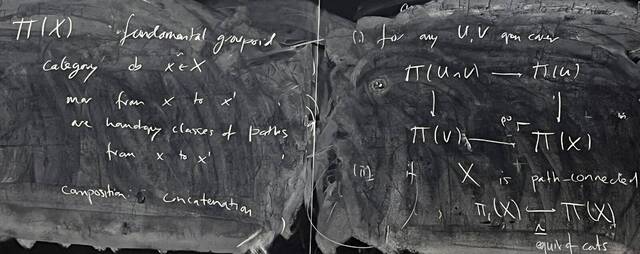 Π(X) fundamental groupoid
category ob x ∈ X
mor from x to x'
are homotopy classes of paths
from x to x'
composition: concatenation
(i) for any U, V open cover
Π(U∩V) → Π(U)
↓ ↓
Π(V) → Π(X)
po
(ii) if X is path-connected
π₁(X) → Π(X)
~
equiv of cats